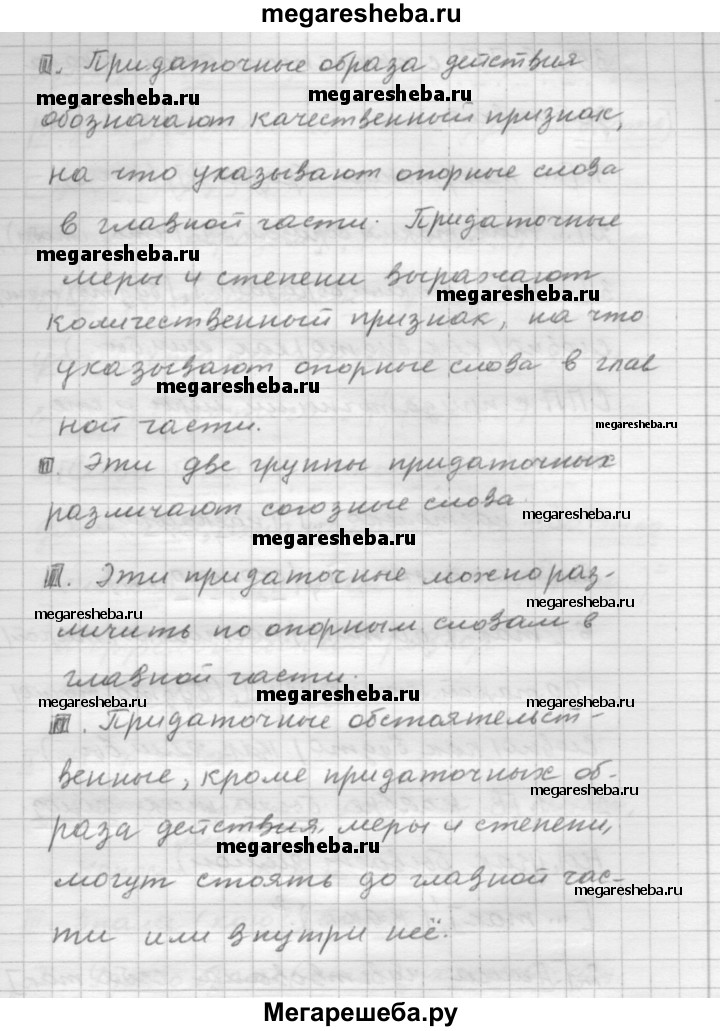 megaresheba.ru
П. Придаточные образа действия
megaresheba.ru megaresheba.ru
обозначают качественный признак,
на что указывают опорные слова
в главной части. Придаточные
megaresheba.ru
меры и степени выражают
megaresheba.ru
количественный признак, на что
указывают опорные слова в глав
megaresheba.ru
ной части.
megaresheba.ru
П. Эти две группы придаточных
различают союзные слова.
megaresheba.ru
megaresheba.ru
П. Эти придаточные можно раз-
megaresheba.ru
megaresheba.ru
личить по опорным словам в
главной части.
megaresheba.ru
megaresheba.ru megaresheba.ru
П. Придаточные обстоятельст-
венные, кроме придаточных об-
megaresheba.ru
раза действия, меры и степени,
megaresheba.ru
могут стоять до главной час-
megaresheba.ru
ти или внутри неё.
Мегарешеба.ру